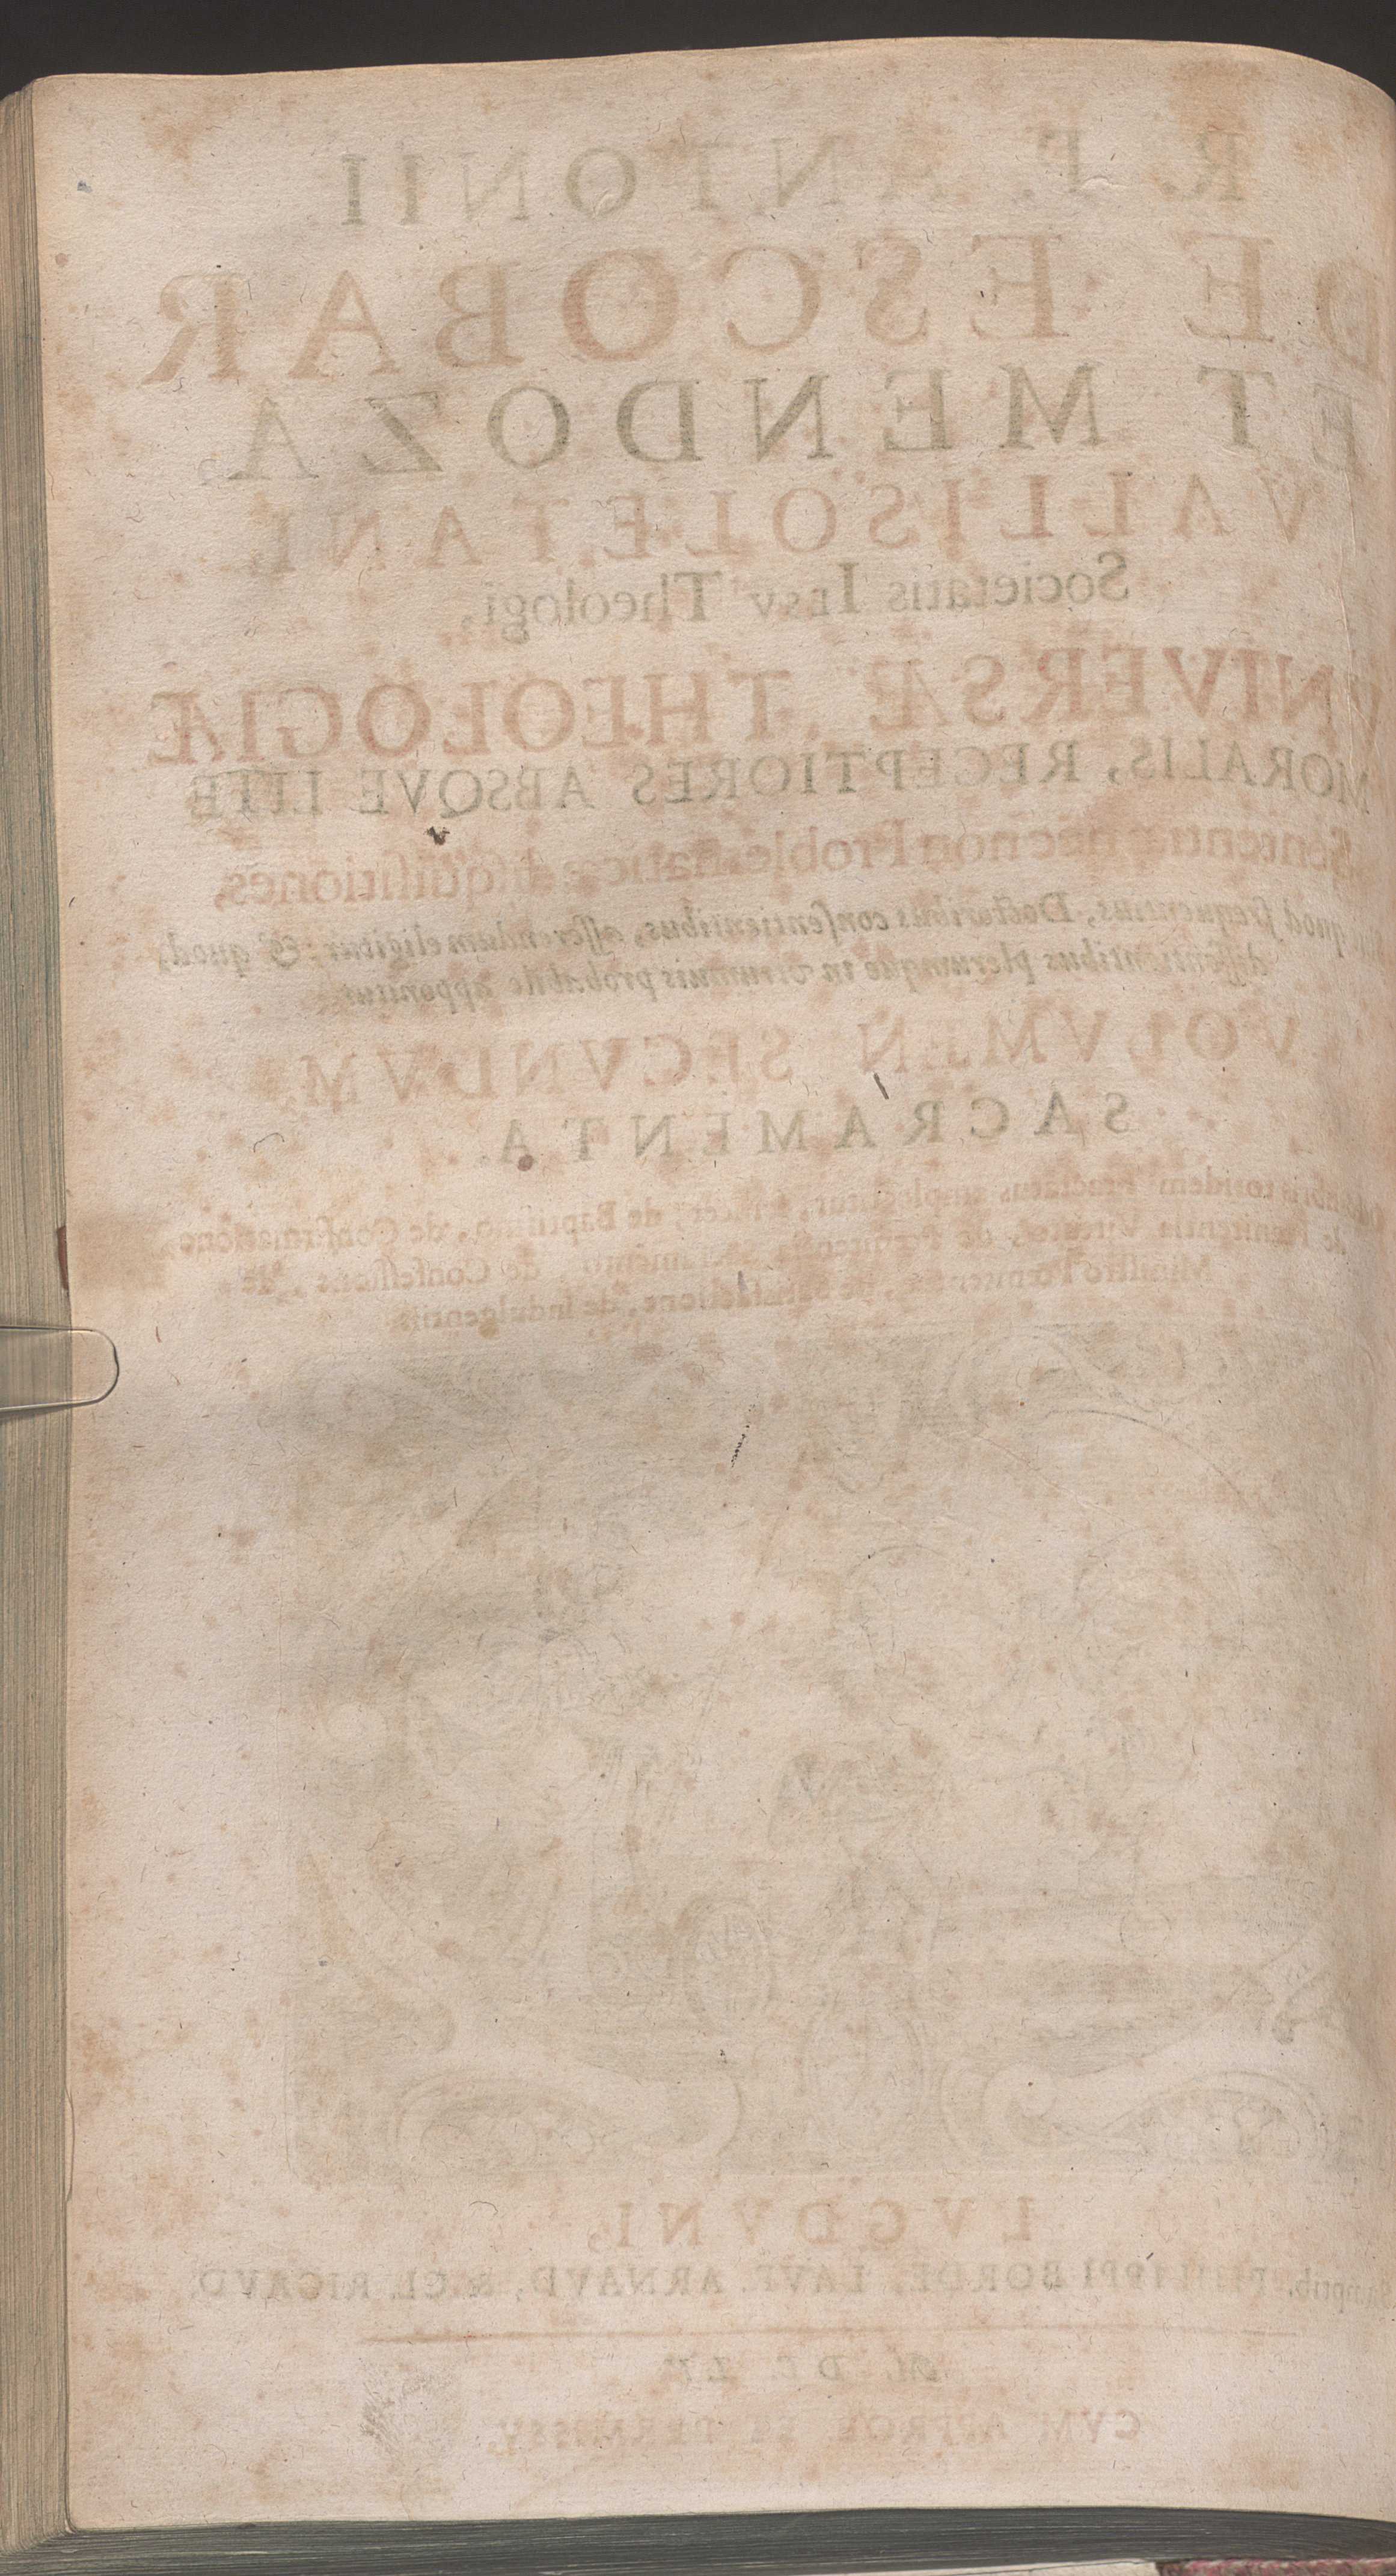 R. P. ANTONII
DE ESCOBAR
ET MENDOZA,
VALLISOLETANI,
Societatis IESV Theologi,
VNIVERSÆ THEOLOGIÆ
MORALIS, RECEPTIORES ABSQVE LITE
Sententiæ necnon Problematicæ disquisitiones,
quod frequentius, Doctoribus consentientibus, asserendum eligitur; & quod,
dissentientibus plerumque in vtrumuis probabile apponitur.
VOLVMEN SECVNDVM,
SACRAMENTA.
totidem tractatus amplectitur, de Baptismo, de Confirmatione,
de Pœnitentia Virtute, de Pœnitentia Sacramento, de Confessione, de
Ministro Pœnitentiæ, de Satisfactione, de Indulgentiis.
LVGDVNI,
Sumptib. PHILIPPI BORDE, LAVR. ARNAVD, & CL. RICAVD.
M. DC. LV.
CVM APPROB. ET PERMISSV.